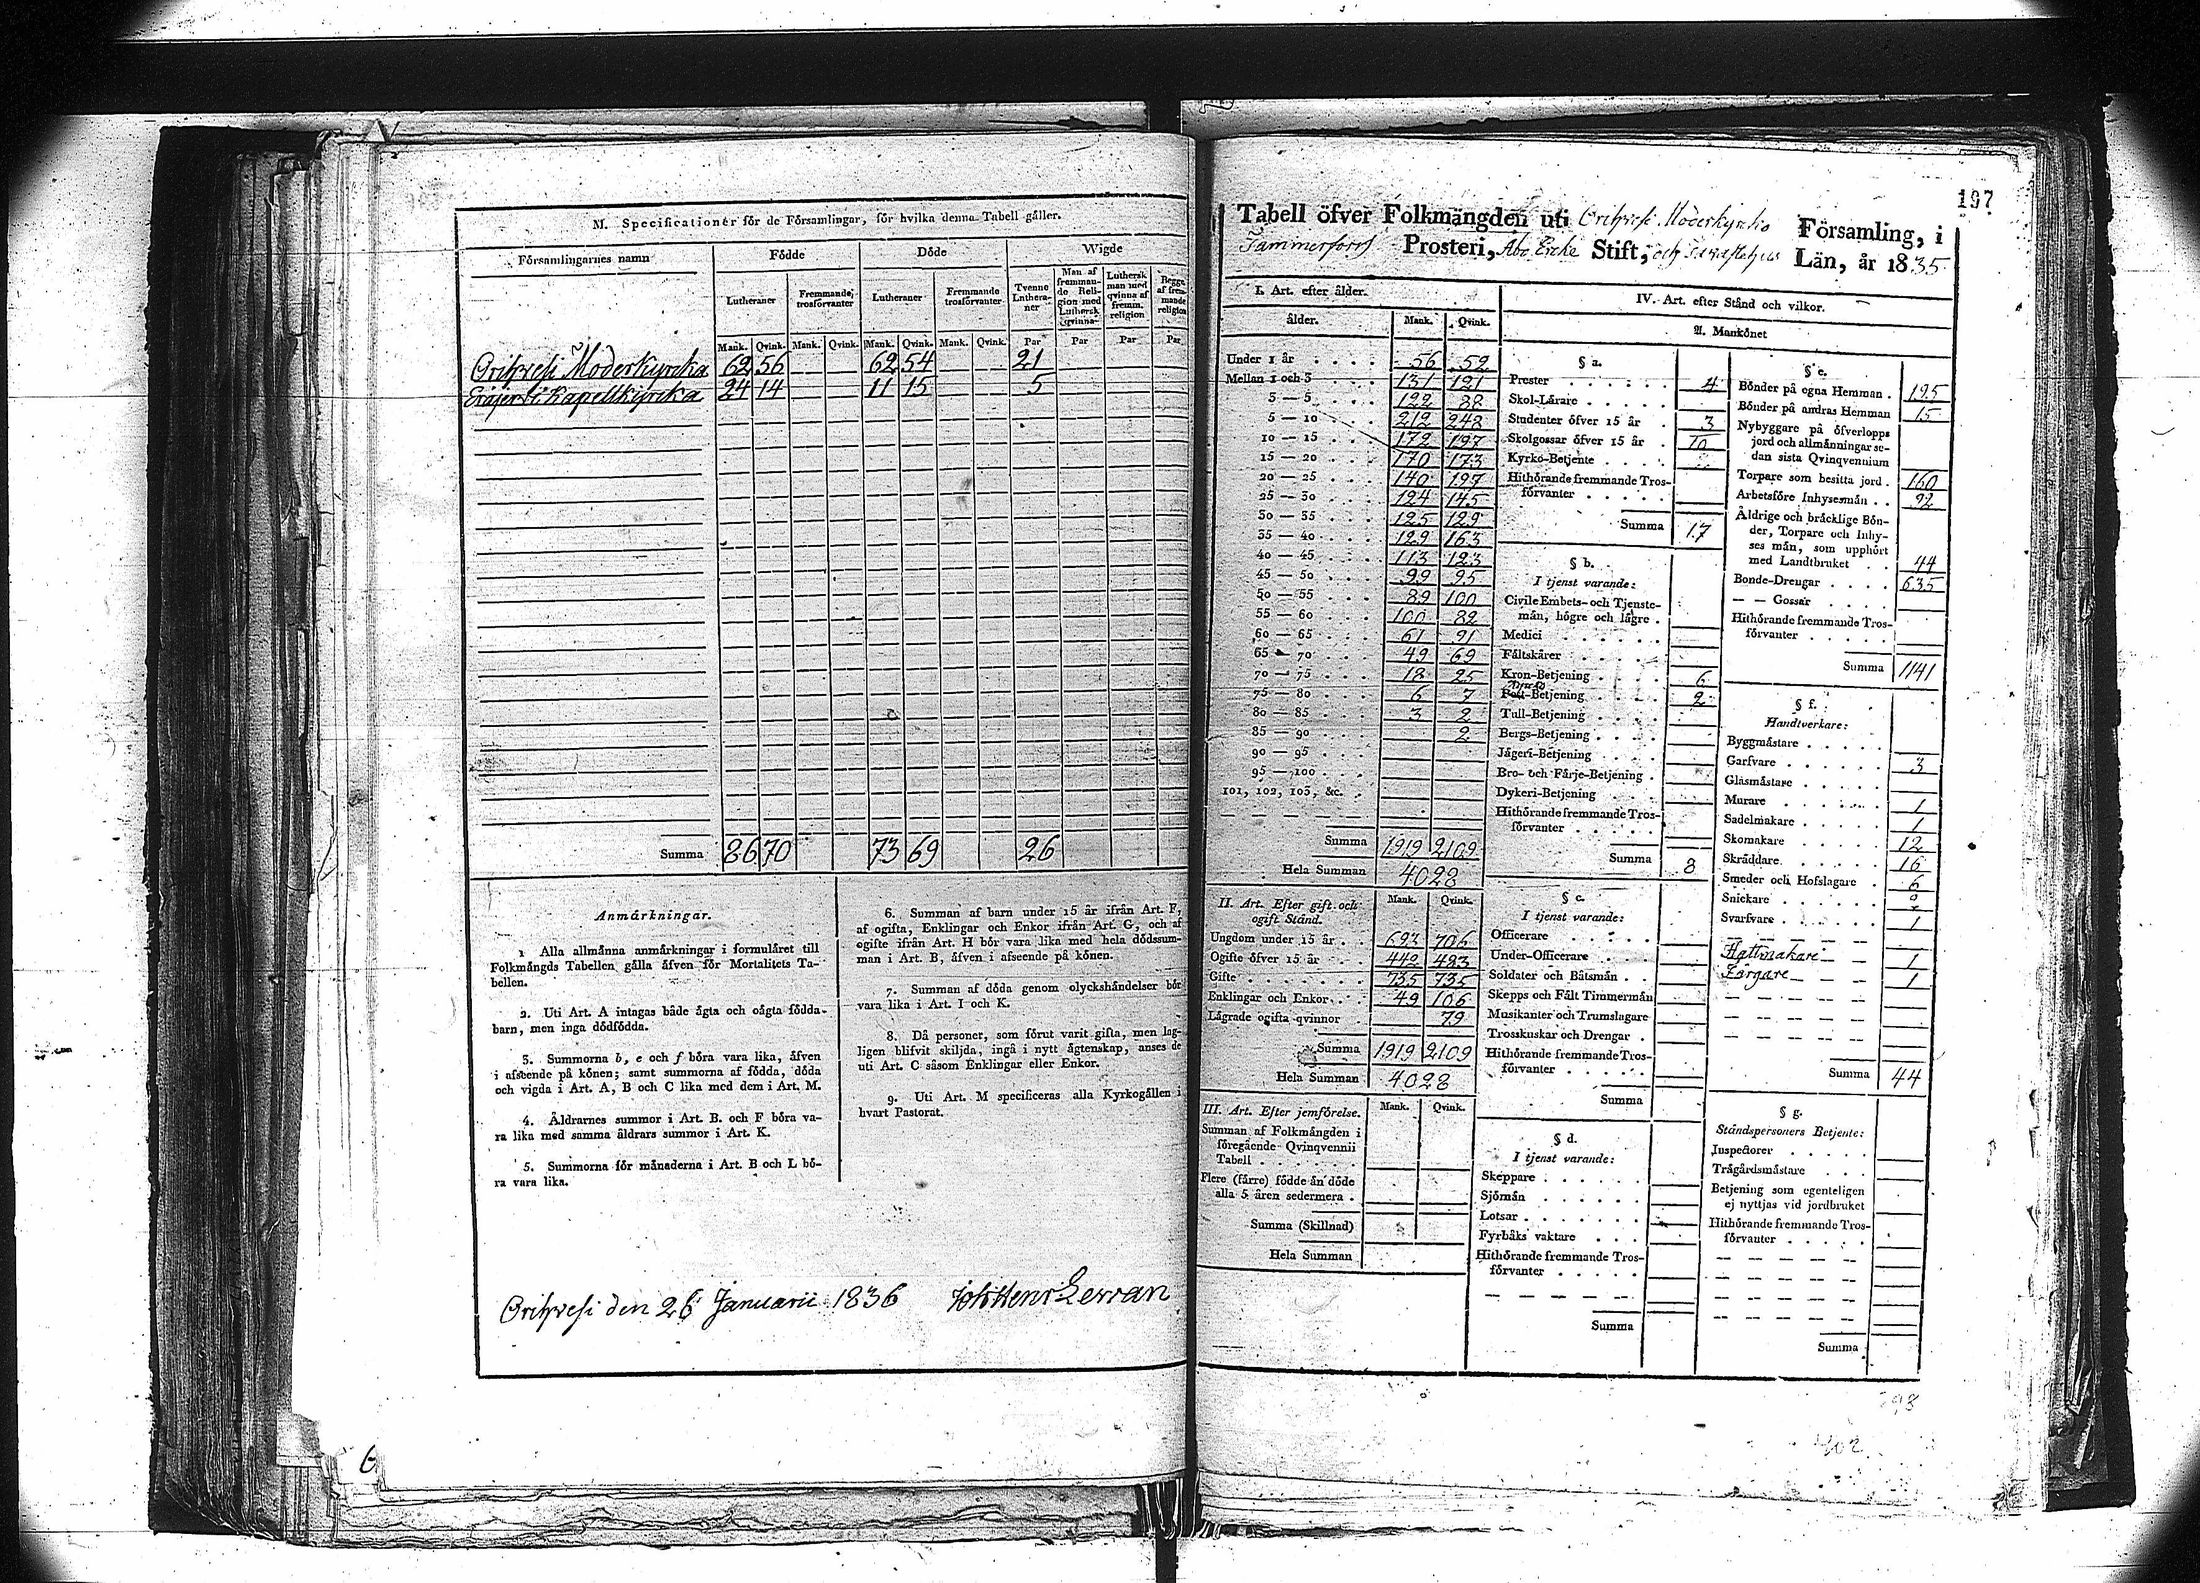 M. Specificationer för de Församlingar, för hvilka denna Tabell gäller.
Församlingarnes namn
Födde
Döde
Wigde
Lutheraner
Fremmande trosförvanter
Lutheraner
Fremmande trosförvanter
Tvenne Lutheraner
Man af fremmande Religion med Luthersk qvinna
Luthersk man med qvinna af fremm. religion
Begge af fremmande religion
Mank. Qvink. Mank. Qvink. Mank. Qvink. Mank. Qvink. Par Par Par Par
Orihvesi Moderkyrcka 62 56 62 54 21
Eräjervi Kapellkyrcka 24 14 11 15 5
Summa 86 70 73 69 26
Anmärkningar.
1 Alla allmänna anmärkningar i formuläret till
Folkmängds Tabellen gälla äfven för Mortalitets Ta-
bellen.
2. Uti Art. A intagas både ägta och oägta födda
barn, men inga dödfödda.
3. Summorna b, e och f böra vara lika, äfven
i afseende på könen; samt summorna af födda, döda
och vigda i Art. A, B och C lika med dem i Art. M.
4. Åldrarnes summor i Art. B. och F böra va-
ra lika med samma åldrars summor i Art. K.
5. Summorna för månaderna i Art. B och L bö-
ra vara lika.
6. Summan af barn under 15 år ifrån Art. F,
af ogifta, Enklingar och Enkor ifrån Art. G, och af
ogifte ifrån Art. H bör vara lika med hela dödssum-
man i Art. B, äfven i afseende på könen.
7. Summan af döda genom olyckshändelser bör
vara lika i Art. I och K.
8. Då personer, som förut varit gifta, men lag-
ligen blifvit skiljda, ingå i nytt ägtenskap, anses de
uti Art. C såsom Enklingar eller Enkor.
9. Uti Art. M specificeras alla Kyrkogällen i
hvart Pastorat.
Orihvesi den 26 Januarii 1836
6
197
Tabell öfver Folkmängden uti Orihvesi Moderkyrko Församling, i
Tammerfors Prosteri, Åbo Ercke Stift, och Tavastehus Län, år 1835.
I. Art. efter ålder.
ålder. Mank. Qvink.
Under 1 år 56 52
Mellan 1 och 3 131 121
3 — 5 192 88
5 — 10 212 248
10 — 15 172 197
15 — 20 170 173
20 — 25 140 197
25 — 30 124 145
30 — 35 125 129
35 — 40 129 163
40 — 45 113 123
45 — 50 99 95
50 — 55 89 100
55 — 60 100 82
60 — 65 61 91
65 — 70 49 69
70 — 75 18 25
75 — 80 6 7
80 — 85 3 2
85 — 90 2
90 — 95
95 — 100
101, 102, 103, &c.
Summa 1919 2109
Hela Summan 4028
II. Art. Efter gift och ogift Stånd. Mank. Qvink.
Ungdom under 15 år 693 706
Ogifte öfver 15 år 442 483
Gifte 735 735
Enklingar och Enkor 49 106
Lägrade ogifta qvinnor 79
Summa 1919 2109
Hela Summan 4028
III. Art. Efter jemförelse. Mank. Qvink.
Summan af Folkmängden i
föregående Qvinqvennii
Tabell
Flere (färre) födde än döde
alla 5 åren sedermera
Summa (Skillnad)
Hela Summan
IV. Art. efter Stånd och vilkor.
A. Mankönet
§ a.
Prester 4
Skol-Lärare
Studenter öfver 15 år 3
Skolgossar öfver 15 år 10
Kyrko-Betjente
Hithörande fremmande Tros-
förvanter
Summa 17
§ b.
I tjenst varande:
Civile Embets- och Tjenste-
män, högre och lägre
Medici
Fältskärer
Kron-Betjening 6
Post-Betjening 2
Tull-Betjening
Bergs-Betjening
Jägeri-Betjening
Bro- och Färje-Betjening
Dykeri-Betjening
Hithörande fremmande Tros-
förvanter
Summa 8
§ c.
I tjenst varande:
Officerare
Under-Officerare
Soldater och Båtsmän
Skepps och Fält Timmermän
Musikanter och Trumslagare
Trosskuskar och Drengar
Hithörande fremmande Tros-
förvanter
Summa
§ d.
I tjenst varande:
Skeppare
Sjömän
Lotsar
Fyrbåks vaktare
Hithörande fremmande Tros-
förvanter
Summa
§ e.
Bönder på egna Hemman 195
Bönder på andras Hemman 15
Nybyggare på öfverlopps
jord och allmänningar se-
dan sista Qvinqvennium
Torpare som besitta jord 160
Arbetsföre Inhysesmän 92
Åldrige och bräcklige Bön-
der, Torpare och Inhy-
ses män, som upphört
med Landtbruket 44
Bonde-Drengar 635
— — Gossar
Hithörande fremmande Tros-
förvanter
Summa 1141
§ f.
Handtverkare:
Byggmästare
Garfvare 3
Glasmästare
Murare 1
Sadelmakare 1
Skomakare 12
Skräddare 16
Smeder och Hofslagare 6
Snickare
Svarfvare 1
Hattmakare 1
Färgare 1
Summa 44
§ g.
Ståndspersoners Betjente:
Inspectorer
Trägårdsmästare
Betjening som egenteligen
ej nyttjas vid jordbruket
Hithörande fremmande Tros-
förvanter
Summa
402